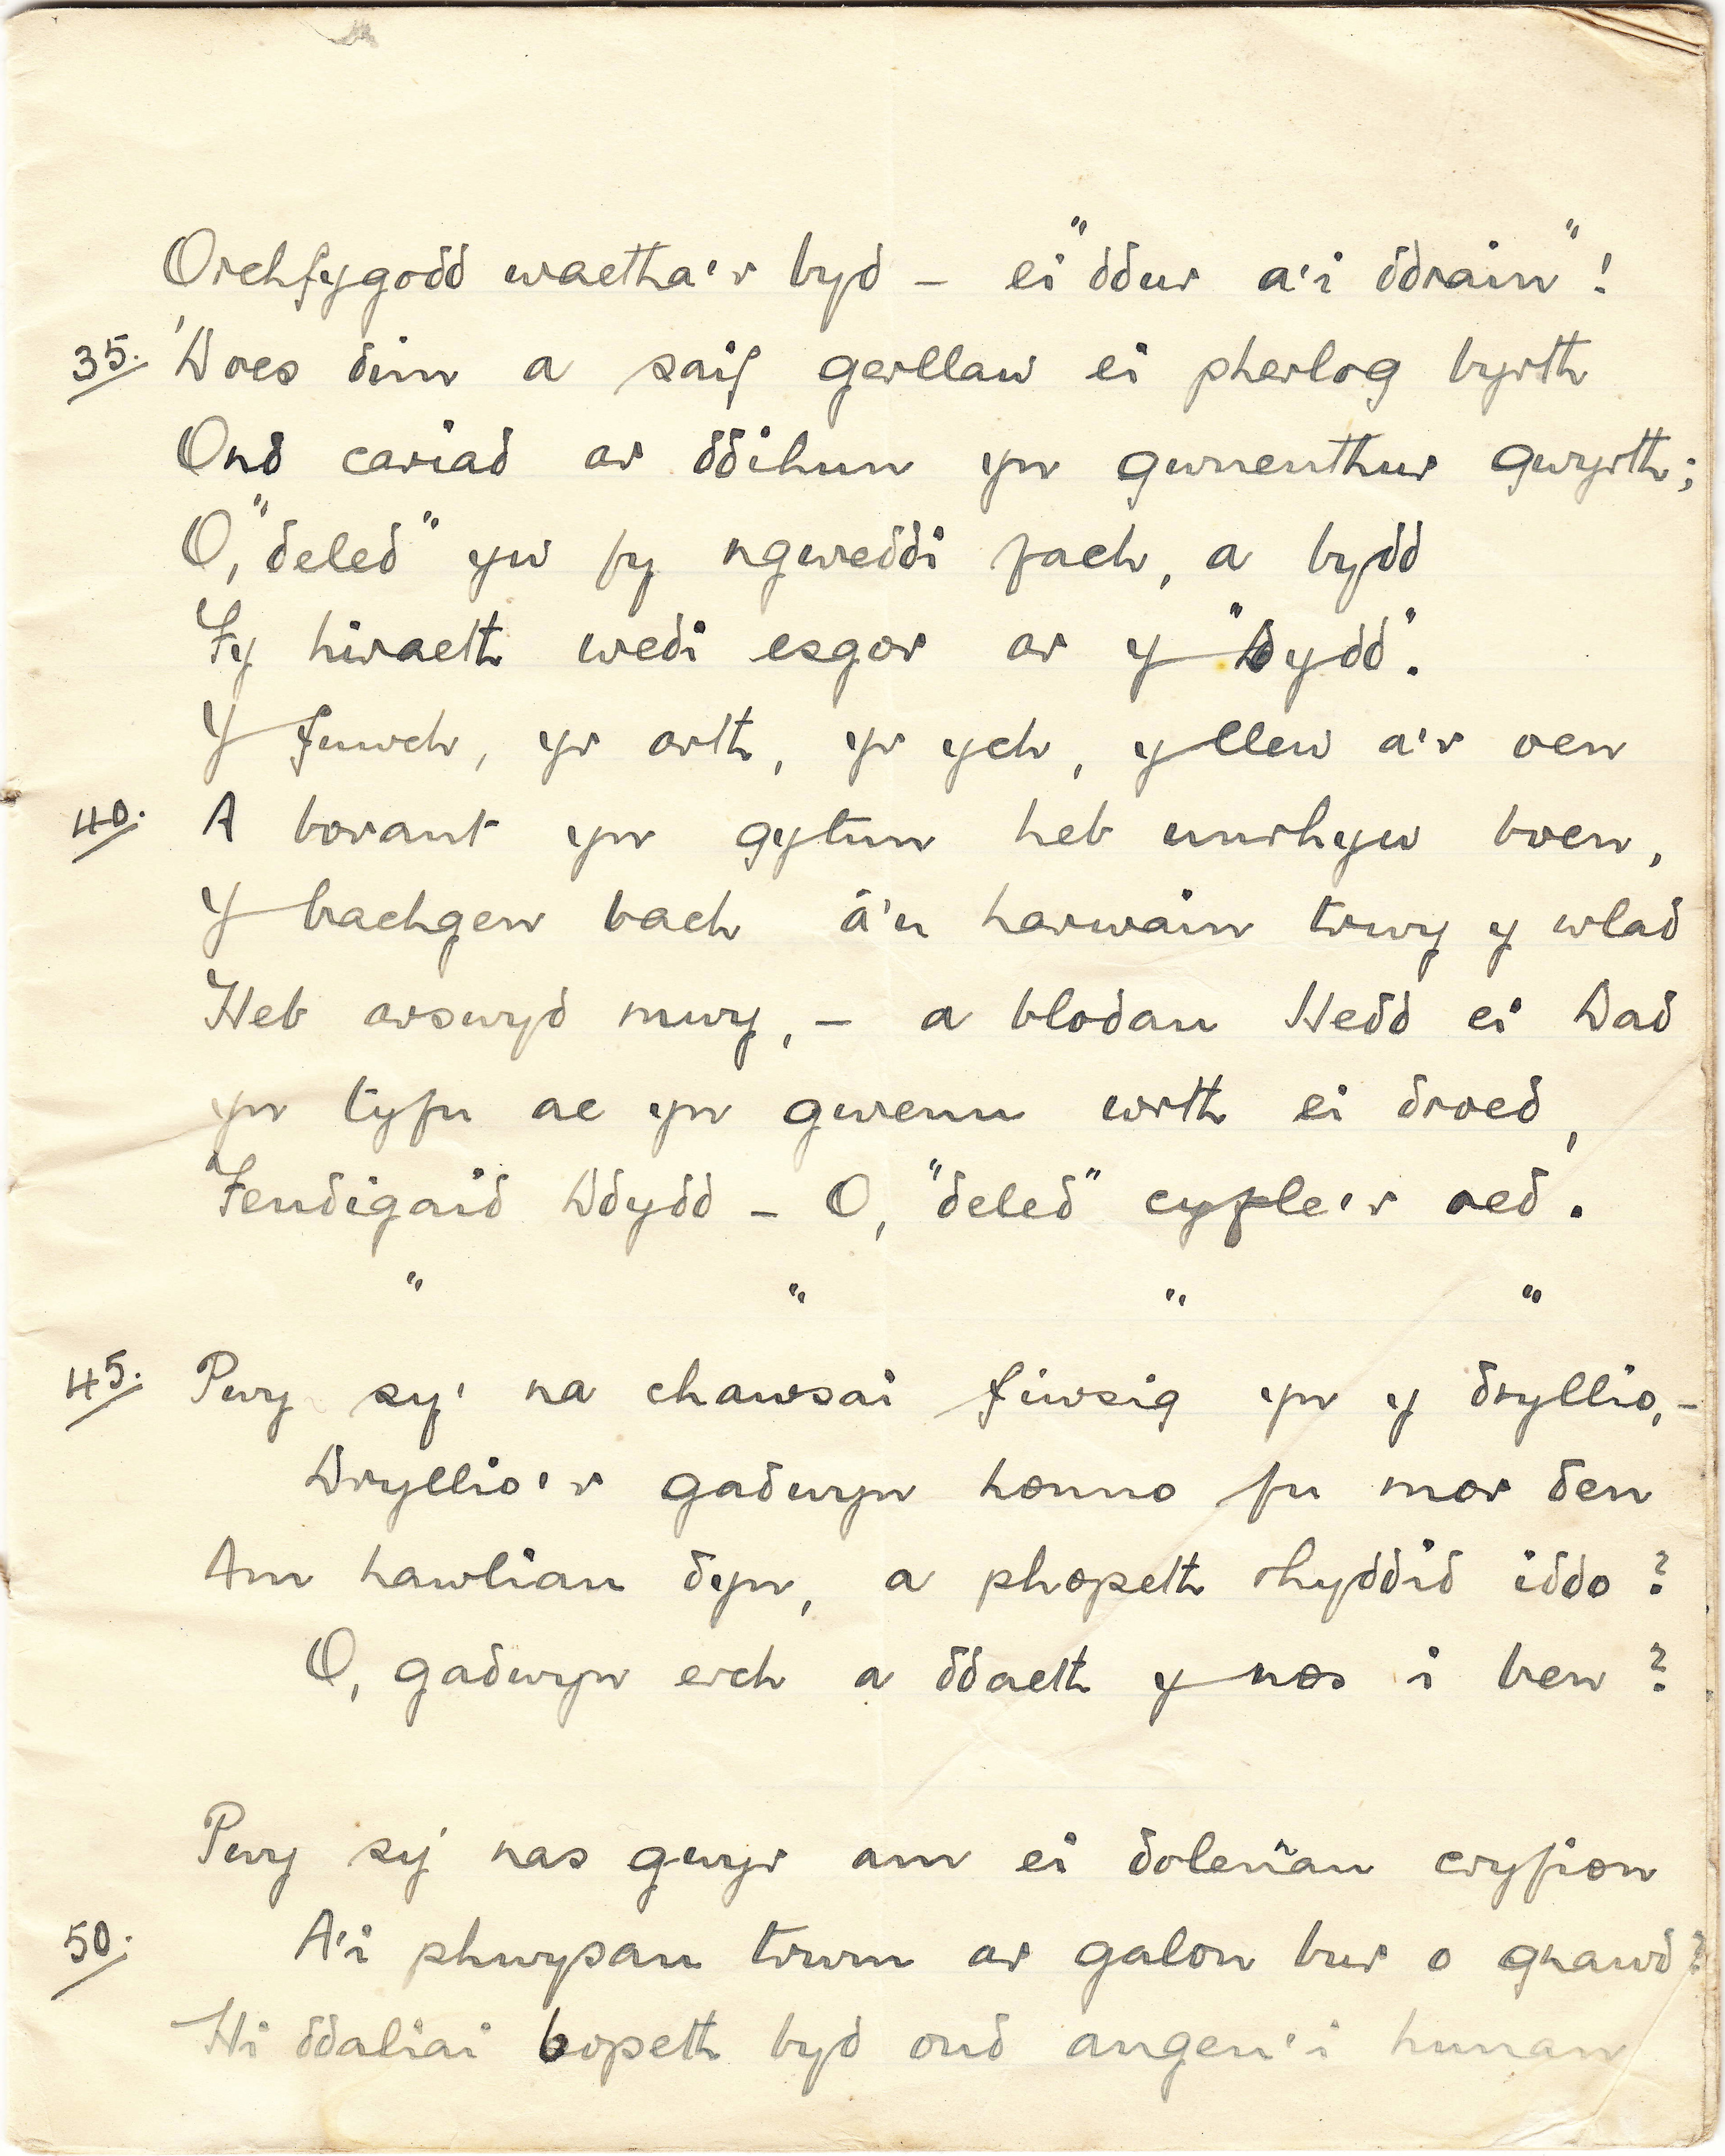 Orchfygodd waetha'r byd – ei "ddur a'i ddrain"!
35. 'Does dim a saif gerllaw ei pherlog byrth
Ond cariad ar ddihun yn gwnenthur gwyrth;
O, "deled" yw fy ngweddi fach, a bydd
Fy hiraeth wedi esgor ar y "Dydd".
Y fuwch, yr arth, yr ych, y llew a'r oen
40. A borant yn gytun heb unrhyw boen,
Y bachgen bach â'u harwain trwy y wlad
Heb arswyd mwy, – a blodau Hedd ei Dad
yn tyfu ac yn gwenu wrth ei droed,
Fendigaid Ddydd – O, "deled" cyfle'r oed.
" " " "
45. Pwy sy' na chawsai fiwsig yn y dryllio, –
Dryllio'r gadwyn honno fu mor den
Am hawliau dyn, a phopeth rhyddid iddo?
O, gadwyn erch a ddaeth y nos i ben?
Pwy sy' nas gwyr am ei dolennau cryfion
50. A'i phwysau trwm ar galon bur o gnawd?
Hi ddaliai bopeth byd ond angen'i hunan